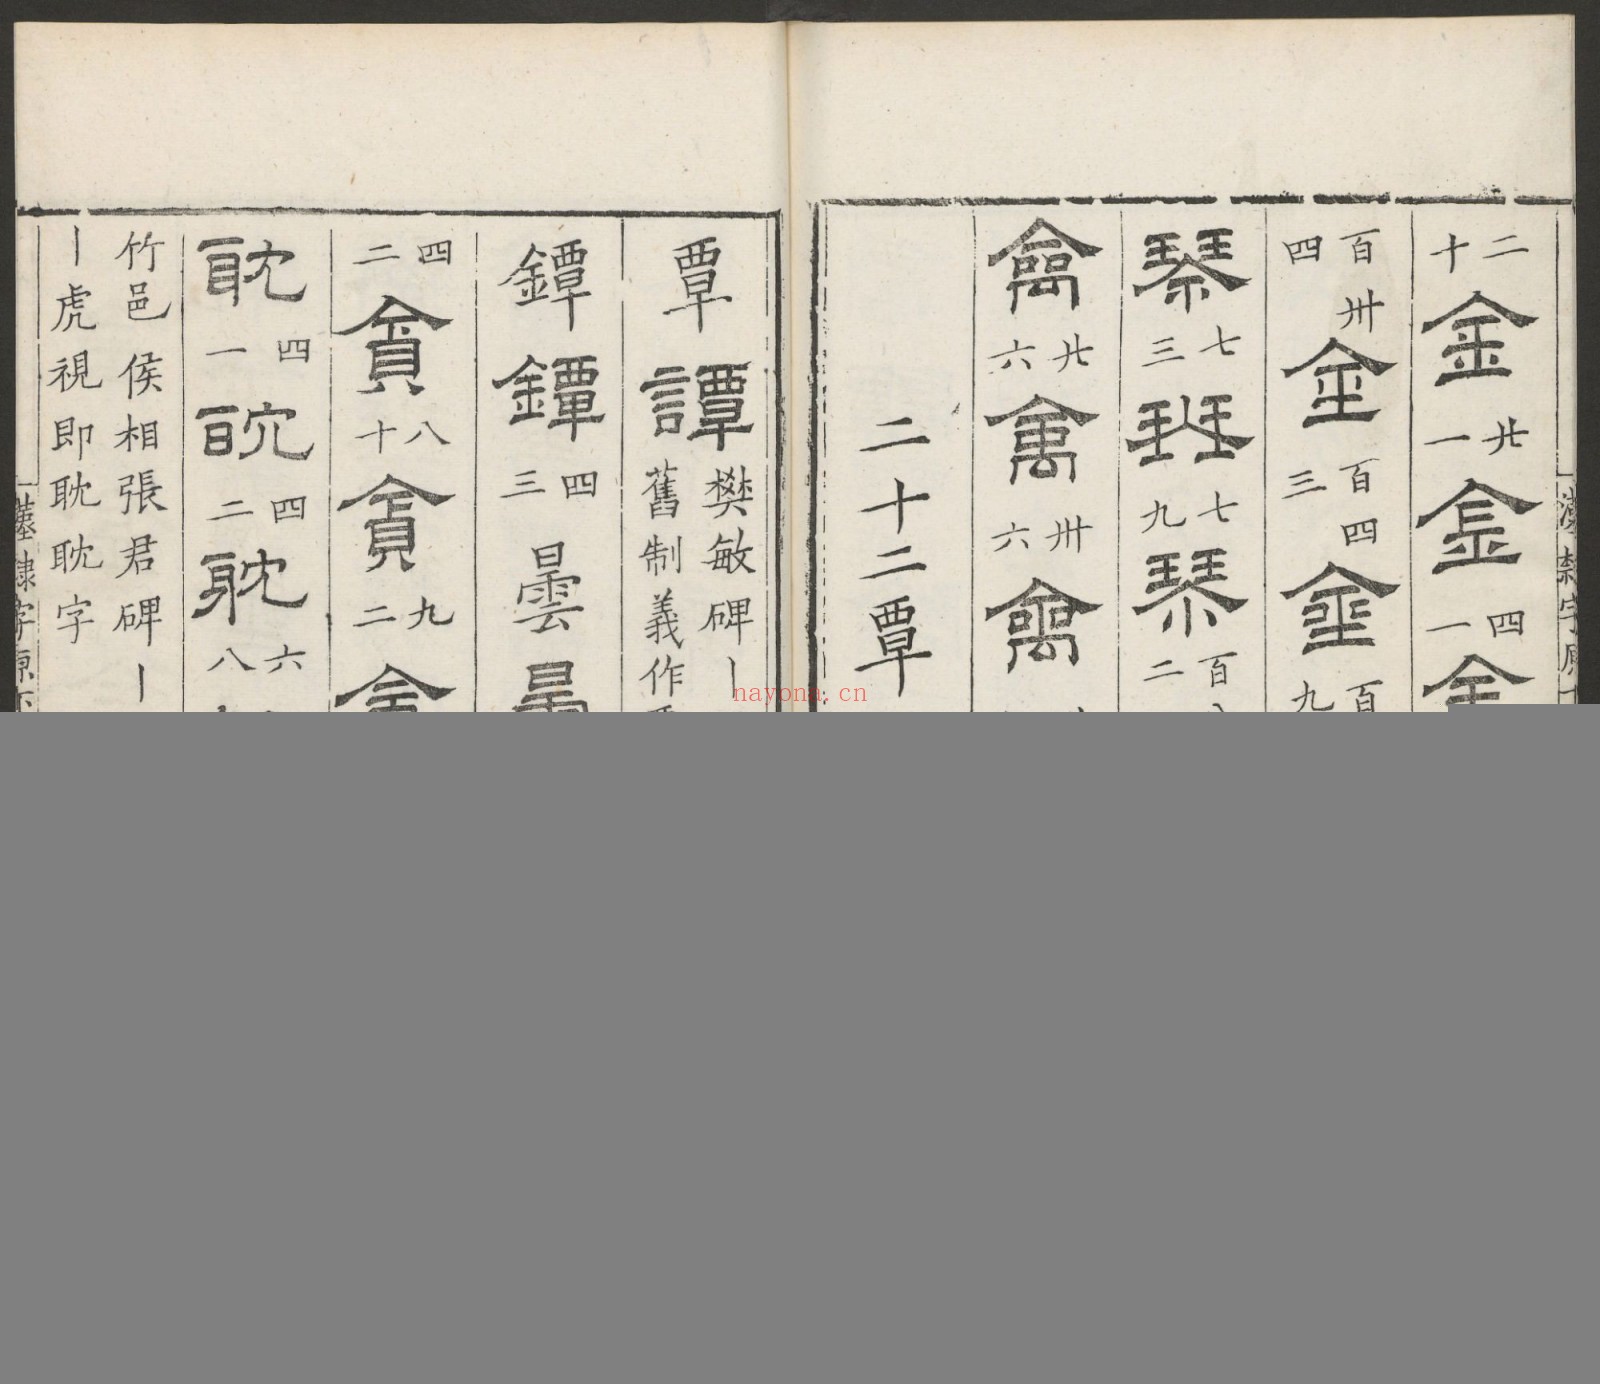 二十金廿一金四一金
百卅四金百四三金百九
琴七三琹七九琴百二
禽廿六禽卅六禽
二十二覃
覃譚樊敏碑丨舊制義作
鐔鐔四三曇曇
四二貪八十貪九二貪
耽四一耽四二耽六八
竹邑侯相張君碑丨
丨虎視即耽耽字
漢隸字原
漢隸字原
nayona.cn